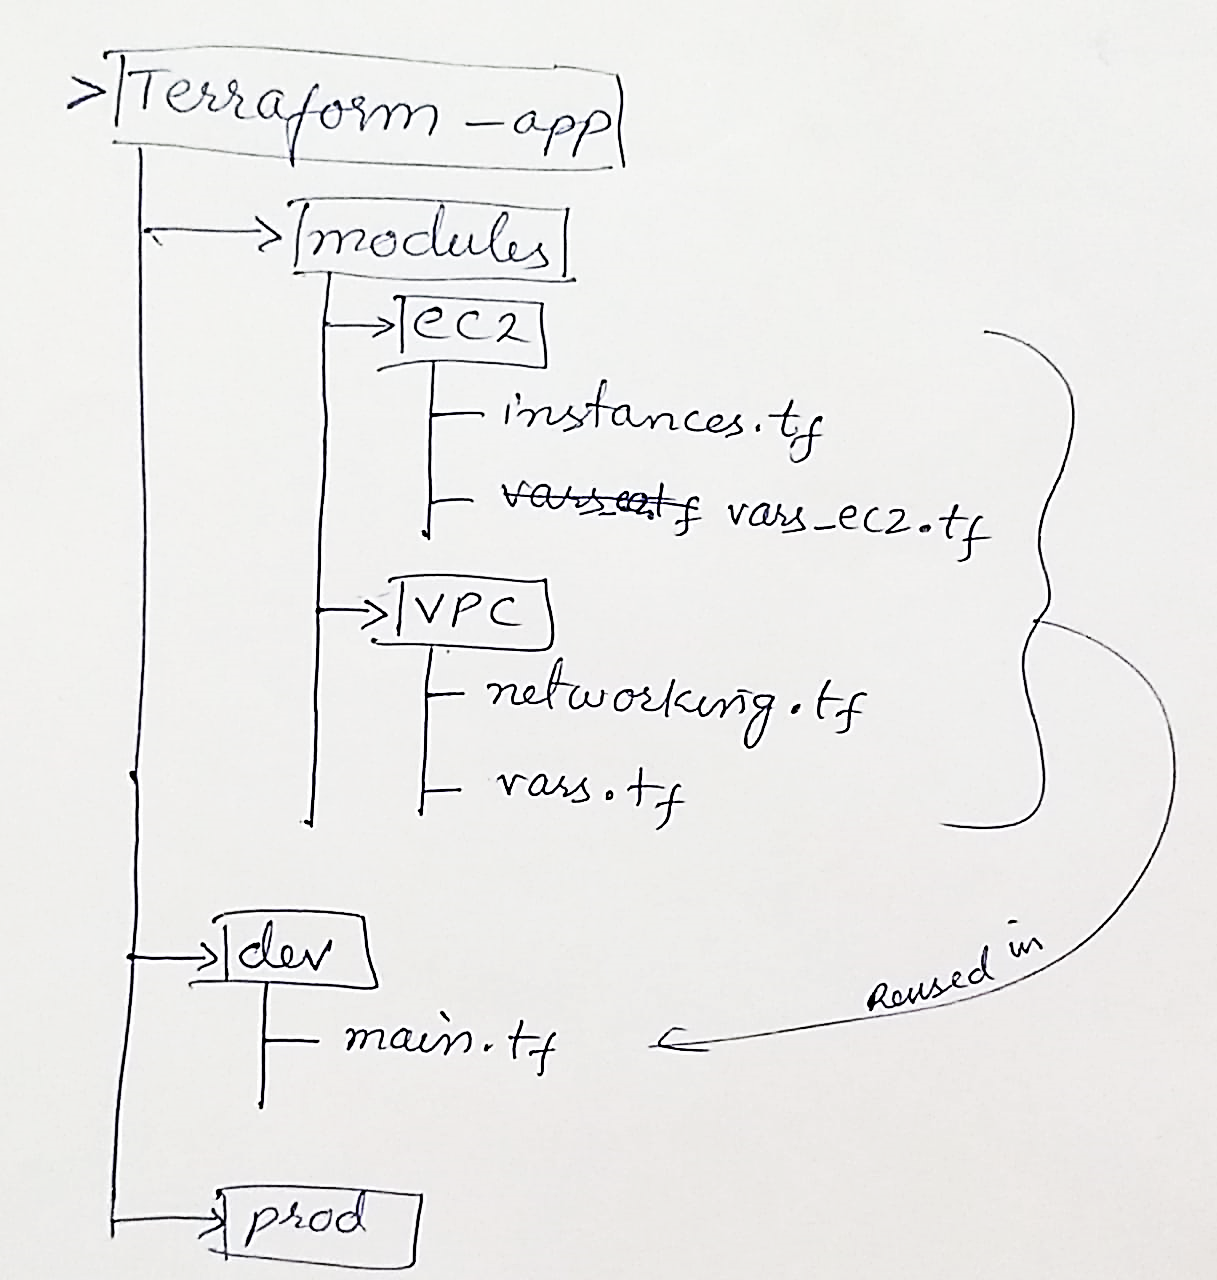 > Terraform-app
modules
ec2
instances.tf
vars_ec2.tf
VPC
networking.tf
vars.tf
dev
main.tf
Reused in
prod